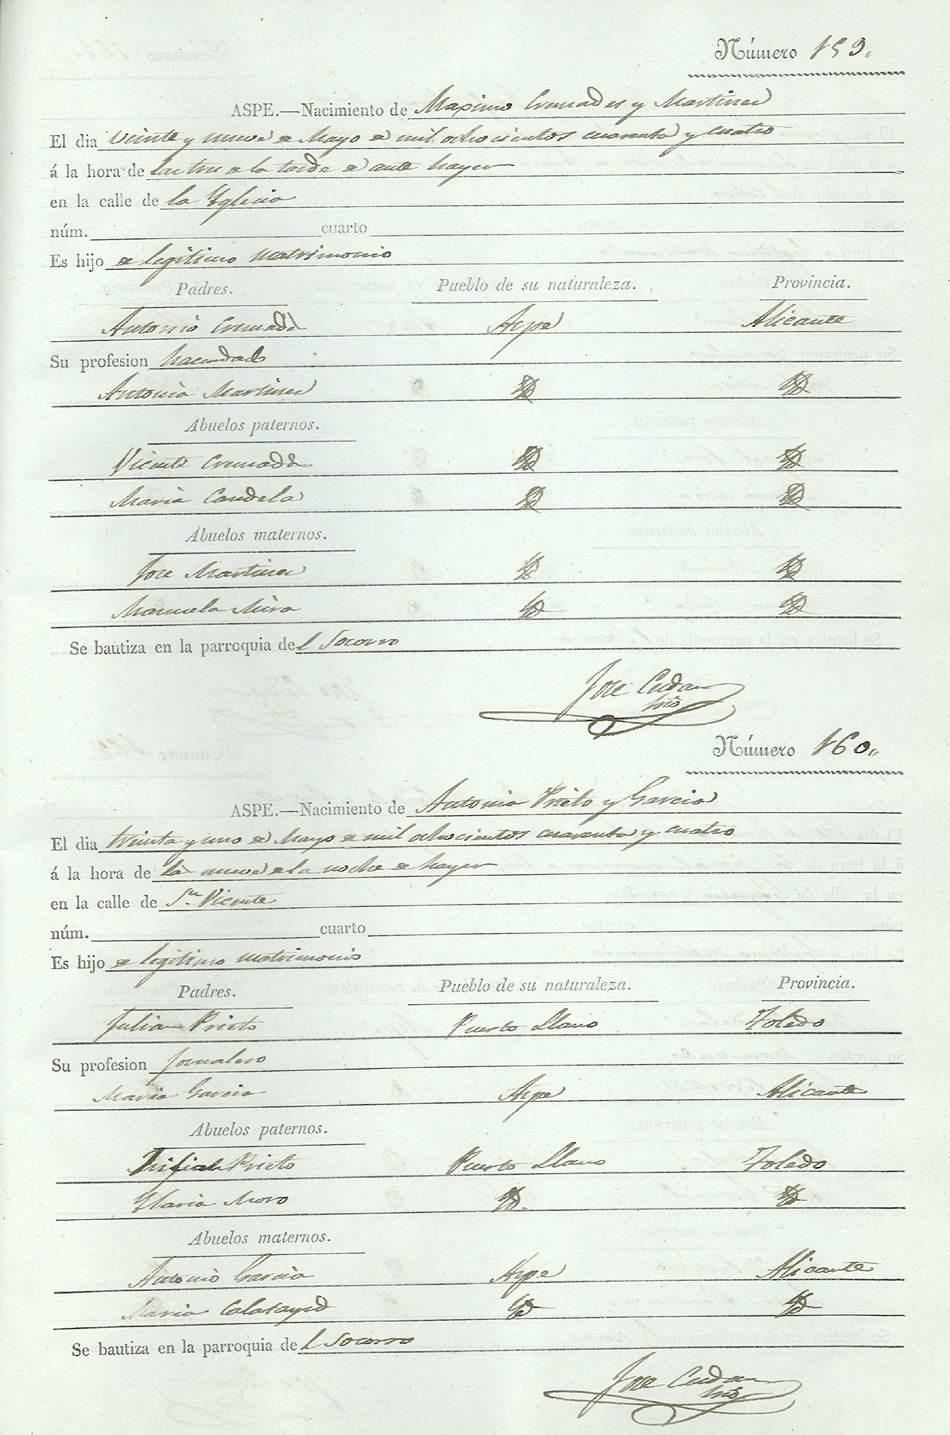 Número 159.
ASPE.—Nacimiento de Maximo Cremades y Martinez
El dia veinte y nueve de Mayo de mil ochocientos cuarenta y cuatro
á la hora de las tres de la tarde de ante hayer
en la calle de la Yglecia
núm. cuarto
Es hijo de legitimo matrimonio
Padres. Pueblo de su naturaleza. Provincia.
Antonio Cremades Aspe Alicante
Su profesion hacendado
Antonia Martinez Yd Yd
Abuelos paternos.
Vicente Cremades Yd Yd
Maria Candela Yd Yd
Abuelos maternos.
Jose Martinez Yd Yd
Manuela Miro Yd Yd
Se bautiza en la parroquia del Socorro
Jose
Número 160.
ASPE.—Nacimiento de Antonia Prieto y Garcia
El dia treinta y uno de Mayo de mil ochocientos cuarenta y cuatro
á la hora de la nueve de la noche de hayer
en la calle de Sn. Vicente
núm. cuarto
Es hijo de legitimo matrimonio
Padres. Pueblo de su naturaleza. Provincia.
Julian Prieto Puerto Llano Toledo
Su profesion Jornalero
Maria Garcia Aspe Alicante
Abuelos paternos.
Prieto Puerto Llano Toledo
Ylaria Moro Yd. Yd
Abuelos maternos.
Antonio Garcia Aspe Alicante
Maria Calatayud Yd Yd
Se bautiza en la parroquia del Socorro
Jose